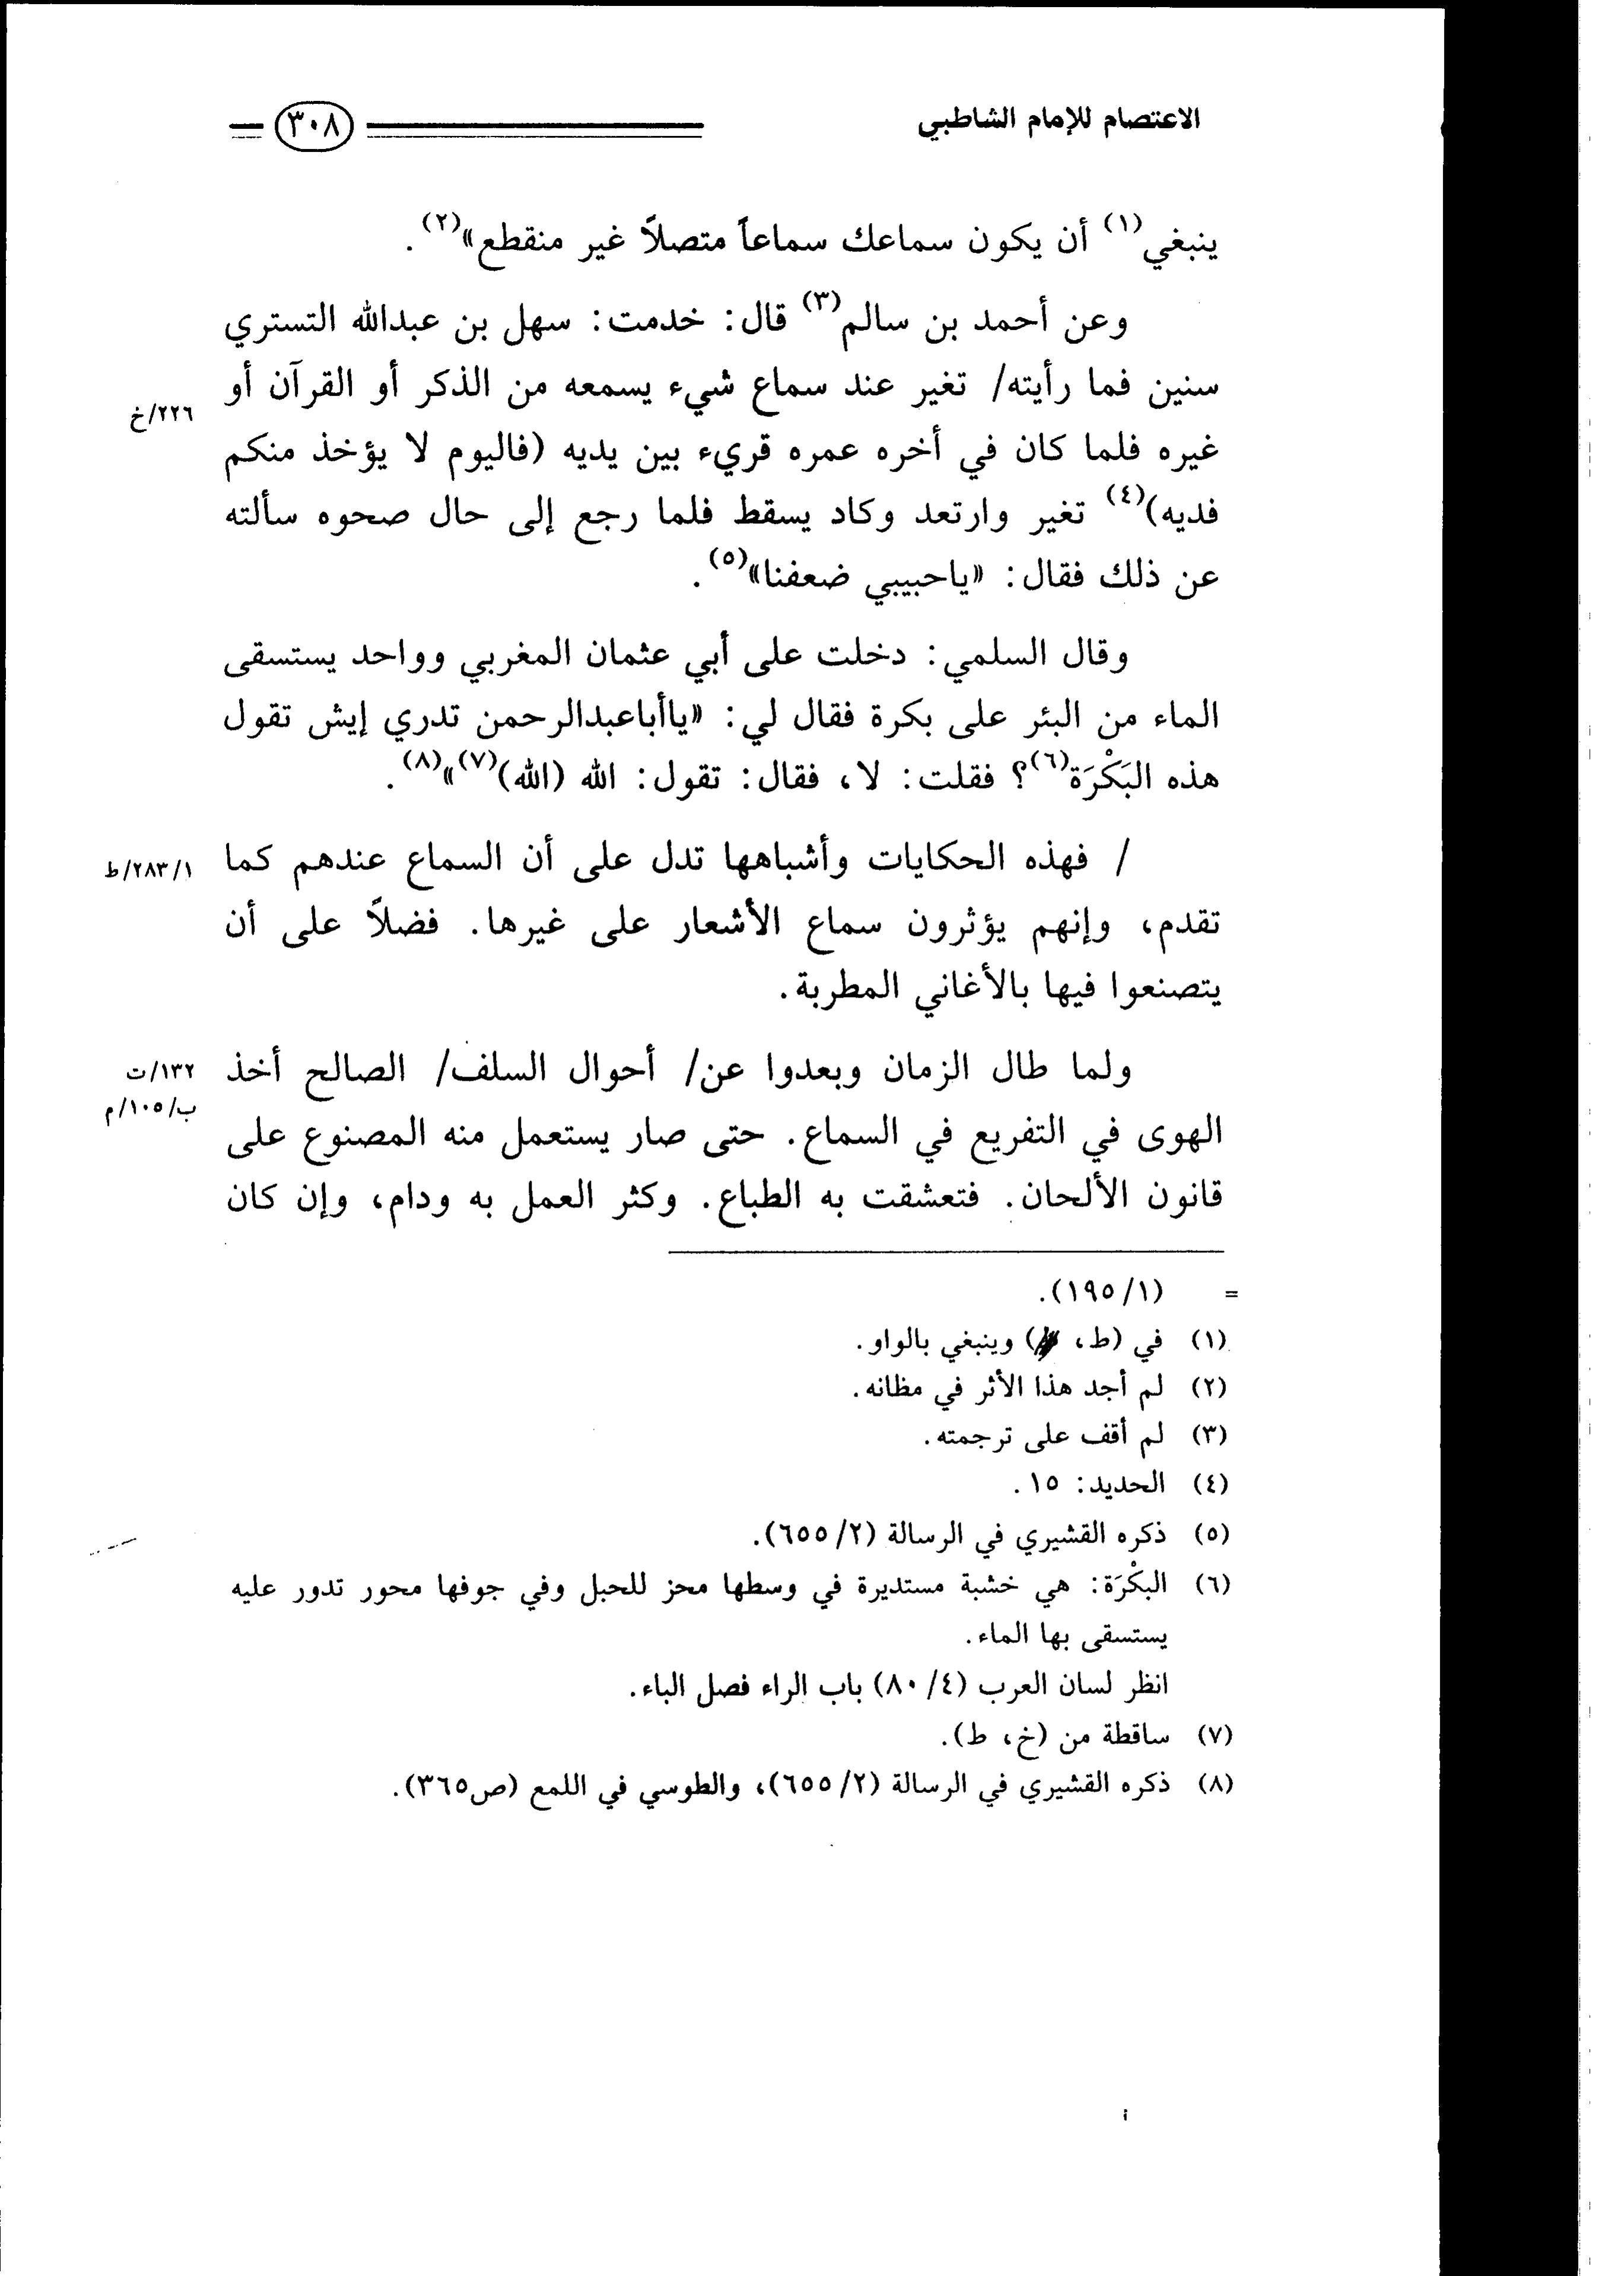 الاعتصام للإمام الشاطبي ٣٠٨
ينبغي(١) أن يكون سماعك سماعاً متصلاً غير منقطع»(٢).
وعن أحمد بن سالم(٣) قال: خدمت: سهل بن عبدالله التستري
سنين فما رأيته/ تغير عند سماع شيء يسمعه من الذكر أو القرآن أو
٢٢٦/خ
غيره فلما كان في أخره عمره قريء بين يديه (فاليوم لا يؤخذ منكم
فديه)(٤) تغير وارتعد وكاد يسقط فلما رجع إلى حال صحوه سألته
عن ذلك فقال: «ياحبيبي ضعفنا»(٥).
وقال السلمي: دخلت على أبي عثمان المغربي وواحد يستسقى
الماء من البئر على بكرة فقال لي: «ياأباعبدالرحمن تدري إيش تقول
هذه البَكْرَة(٦)؟ فقلت: لا، فقال: تقول: الله (الله)(٧)»(٨).
/ فهذه الحكايات وأشباهها تدل على أن السماع عندهم كما
٢٨٣/١/ط
تقدم، وإنهم يؤثرون سماع الأشعار على غيرها. فضلاً على أن
يتصنعوا فيها بالأغاني المطربة.
ولما طال الزمان وبعدوا عن/ أحوال السلف/ الصالح أخذ
١٣٢/ت
ب/١٠٥/م
الهوى في التفريع في السماع. حتى صار يستعمل منه المصنوع على
قانون الألحان. فتعشقت به الطباع. وكثر العمل به ودام، وإن كان
= (١٩٥/١).
(١) في (ط، ) وينبغي بالواو.
(٢) لم أجد هذا الأثر في مظانه.
(٣) لم أقف على ترجمته.
(٤) الحديد: ١٥.
(٥) ذكره القشيري في الرسالة (٦٥٥/٢).
(٦) البكْرَة: هي خشبة مستديرة في وسطها محز للحبل وفي جوفها محور تدور عليه
يستسقى بها الماء.
انظر لسان العرب (٨٠/٤) باب الراء فصل الباء.
(٧) ساقطة من (خ، ط).
(٨) ذكره القشيري في الرسالة (٦٥٥/٢)، والطوسي في اللمع (ص٣٦٥).